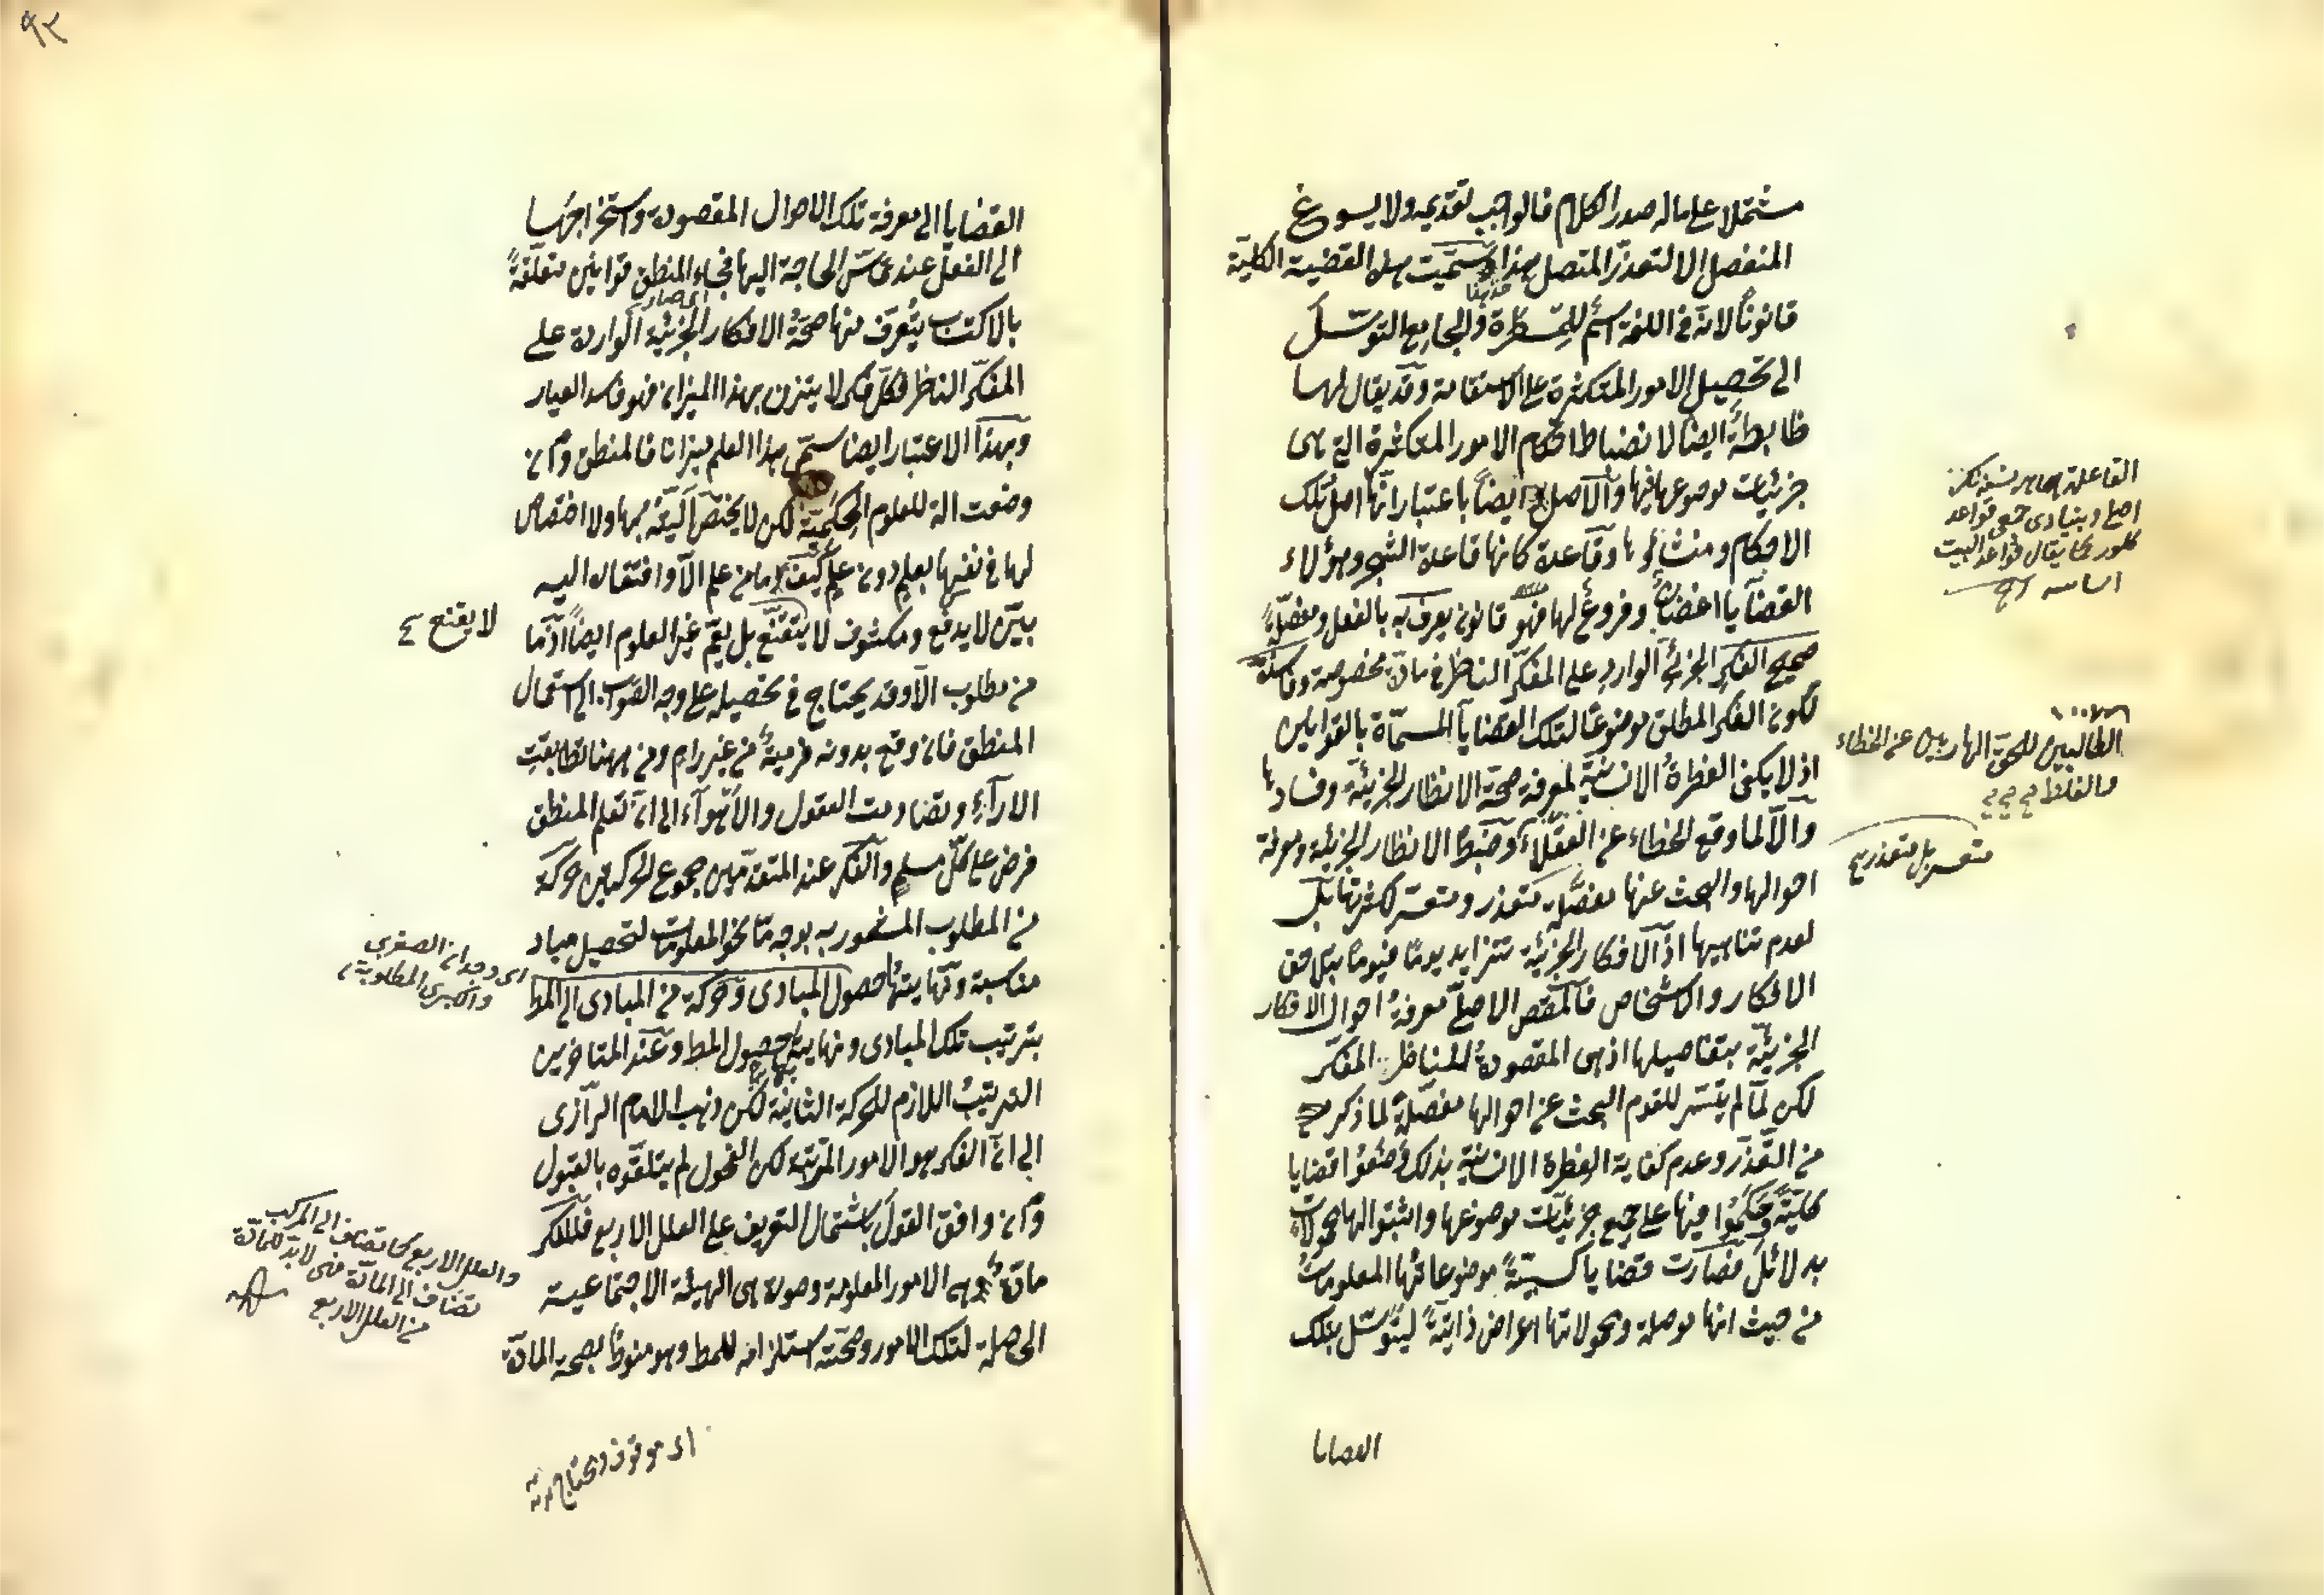 مشتملا على ماله صدر الكلام فالواجب تقديمه ولا يسوغ
المنفصل الا لتعذر المتصل هذا وسميت هذه القضية الكلية
قانونا لانه في اللغة اسم للمسطرة والجامع التوسل
الى تحصيل الامور المتكثرة على الاستقامة وقد يقال لها
ظابطة ايضا لانضباط احكام الامور المتكثرة التي هى
جزئيات موضوعها فيها والاصل ايضا باعتبار انها اصل تلك
الاحكام ومنشأ لها وقاعدة كانها قاعدة الشجر وهؤلاء
القضايا اغصان وفروع لها فهو قانون يعرف به بالفعل ومفصلة
صحيح الفكر الجزئى الوارد على المفكر الناظر في مادة مخصوصة وفاسده
لكون الفكر المطلق موضوعا لتلك القضايا المسماة بالقوانين
اذ لا يكفى الفطرة الانسانية لمعرفة صحة الانظار الجزئية وفسادها
والا لما وقع الخطاء عن العقلاء وضبط الانظار الجزئية ومعرفة
احوالها والبحث عنها مفصلة متعذر ومتعسر لكثرتها بل
لعدم تناهيها اذ الافكار الجزئية تتزايد يوما فيوما بتلاحق
الافكار والاشخاص فالمقصد الاصلى معرفة احوال الافكار
الجزئية بتفاصيلها اذ هى المقصودة للناظر المفكر
لكن لما لم يتيسر للقوم البحث عن احوالها مفصلة لما ذكر
من التعذر وعدم كفاية الفطرة الانسانية بذلك وضعوا قضايا
كلية وحكموا فيها على جميع جزئيات موضوعها واثبتوا لها محمولات
بدلائل فصارت قضايا كسبية موضوعاتها المعلومات
من حيث انها موصلة ومحمولاتها اعراض ذاتية ليتوسل بتلك
القضايا
اصلى وبنيادى جمع قواعد
كلور كما يقال قواعد البيت
اساسه
الطالبين للحق الهاربين عن الخطاء
والغلط
متعسر بل متعذر
٩٢
القضايا الى معرفة تلك الاحوال المقصودة واستخراجها
الى الفعل عند مس الحاجة اليها فجاء المنطق قوانين متعلقة
بالاكتساب يعرف منها صحة الافكار الجزئية الواردة على
المفكر الناظر فكل فكر لا يتزن بهذا الميزان فهو فاسد العيار
وبهذا الاعتبار ايضا سمى هذا العلم ميزانا فالمنطق وان
وضعت الة للعلوم الحكمية لكن لا يختص آليته بها ولا اختصاص
لها في نفسها بعلم دون علم كيف وما من علم الا وافتقاره اليه
بين لا يدفع ومكشوف لا يتقنع بل يعم غير العلوم ايضا اذ ما
من مطلوب الا وقد يحتاج في تحصيله على وجه الصواب الى استعمال
المنطق فان وقع بدونه فرمية من غير رام ومن ههنا تطابقت
الاراء وتضاومت العقول والاهواء الى ان تعلم المنطق
فرض على كل مسلم والفكر عند المتقدمين مجموع الحركتين حركة
من المطلوب المشعور به بوجه ما نحو المعلومات لتحصيل مباد
مناسبة ونهايتها حصول المبادى وحركة من المبادى الى المط
بترتيب تلك المبادى ونهايتها حصول المط وعند المتاخرين
الترتيب اللازم للحركة الثانية لكن ذهب الامام الرازى
الى ان الفكر هو الامور المترتبة لكن الفحول لم يتلقوه بالقبول
وان وافق القول باشتمال التعريف على العلل الاربع فللفكر
مادة وهى الامور المعلومة وصورة هى الهيئة الاجتماعية
الحاصلة لتلك الامور وصحته استلزامه للمط وهو منوط بصحة المادة
لا يقنع
اى وجدان الصغرى
والكبرى المطلوبة
والعلل الاربع كما تضاف الى المركب
تضاف الى المادة
من العلل الاربع
اى موقوف ومحتاج